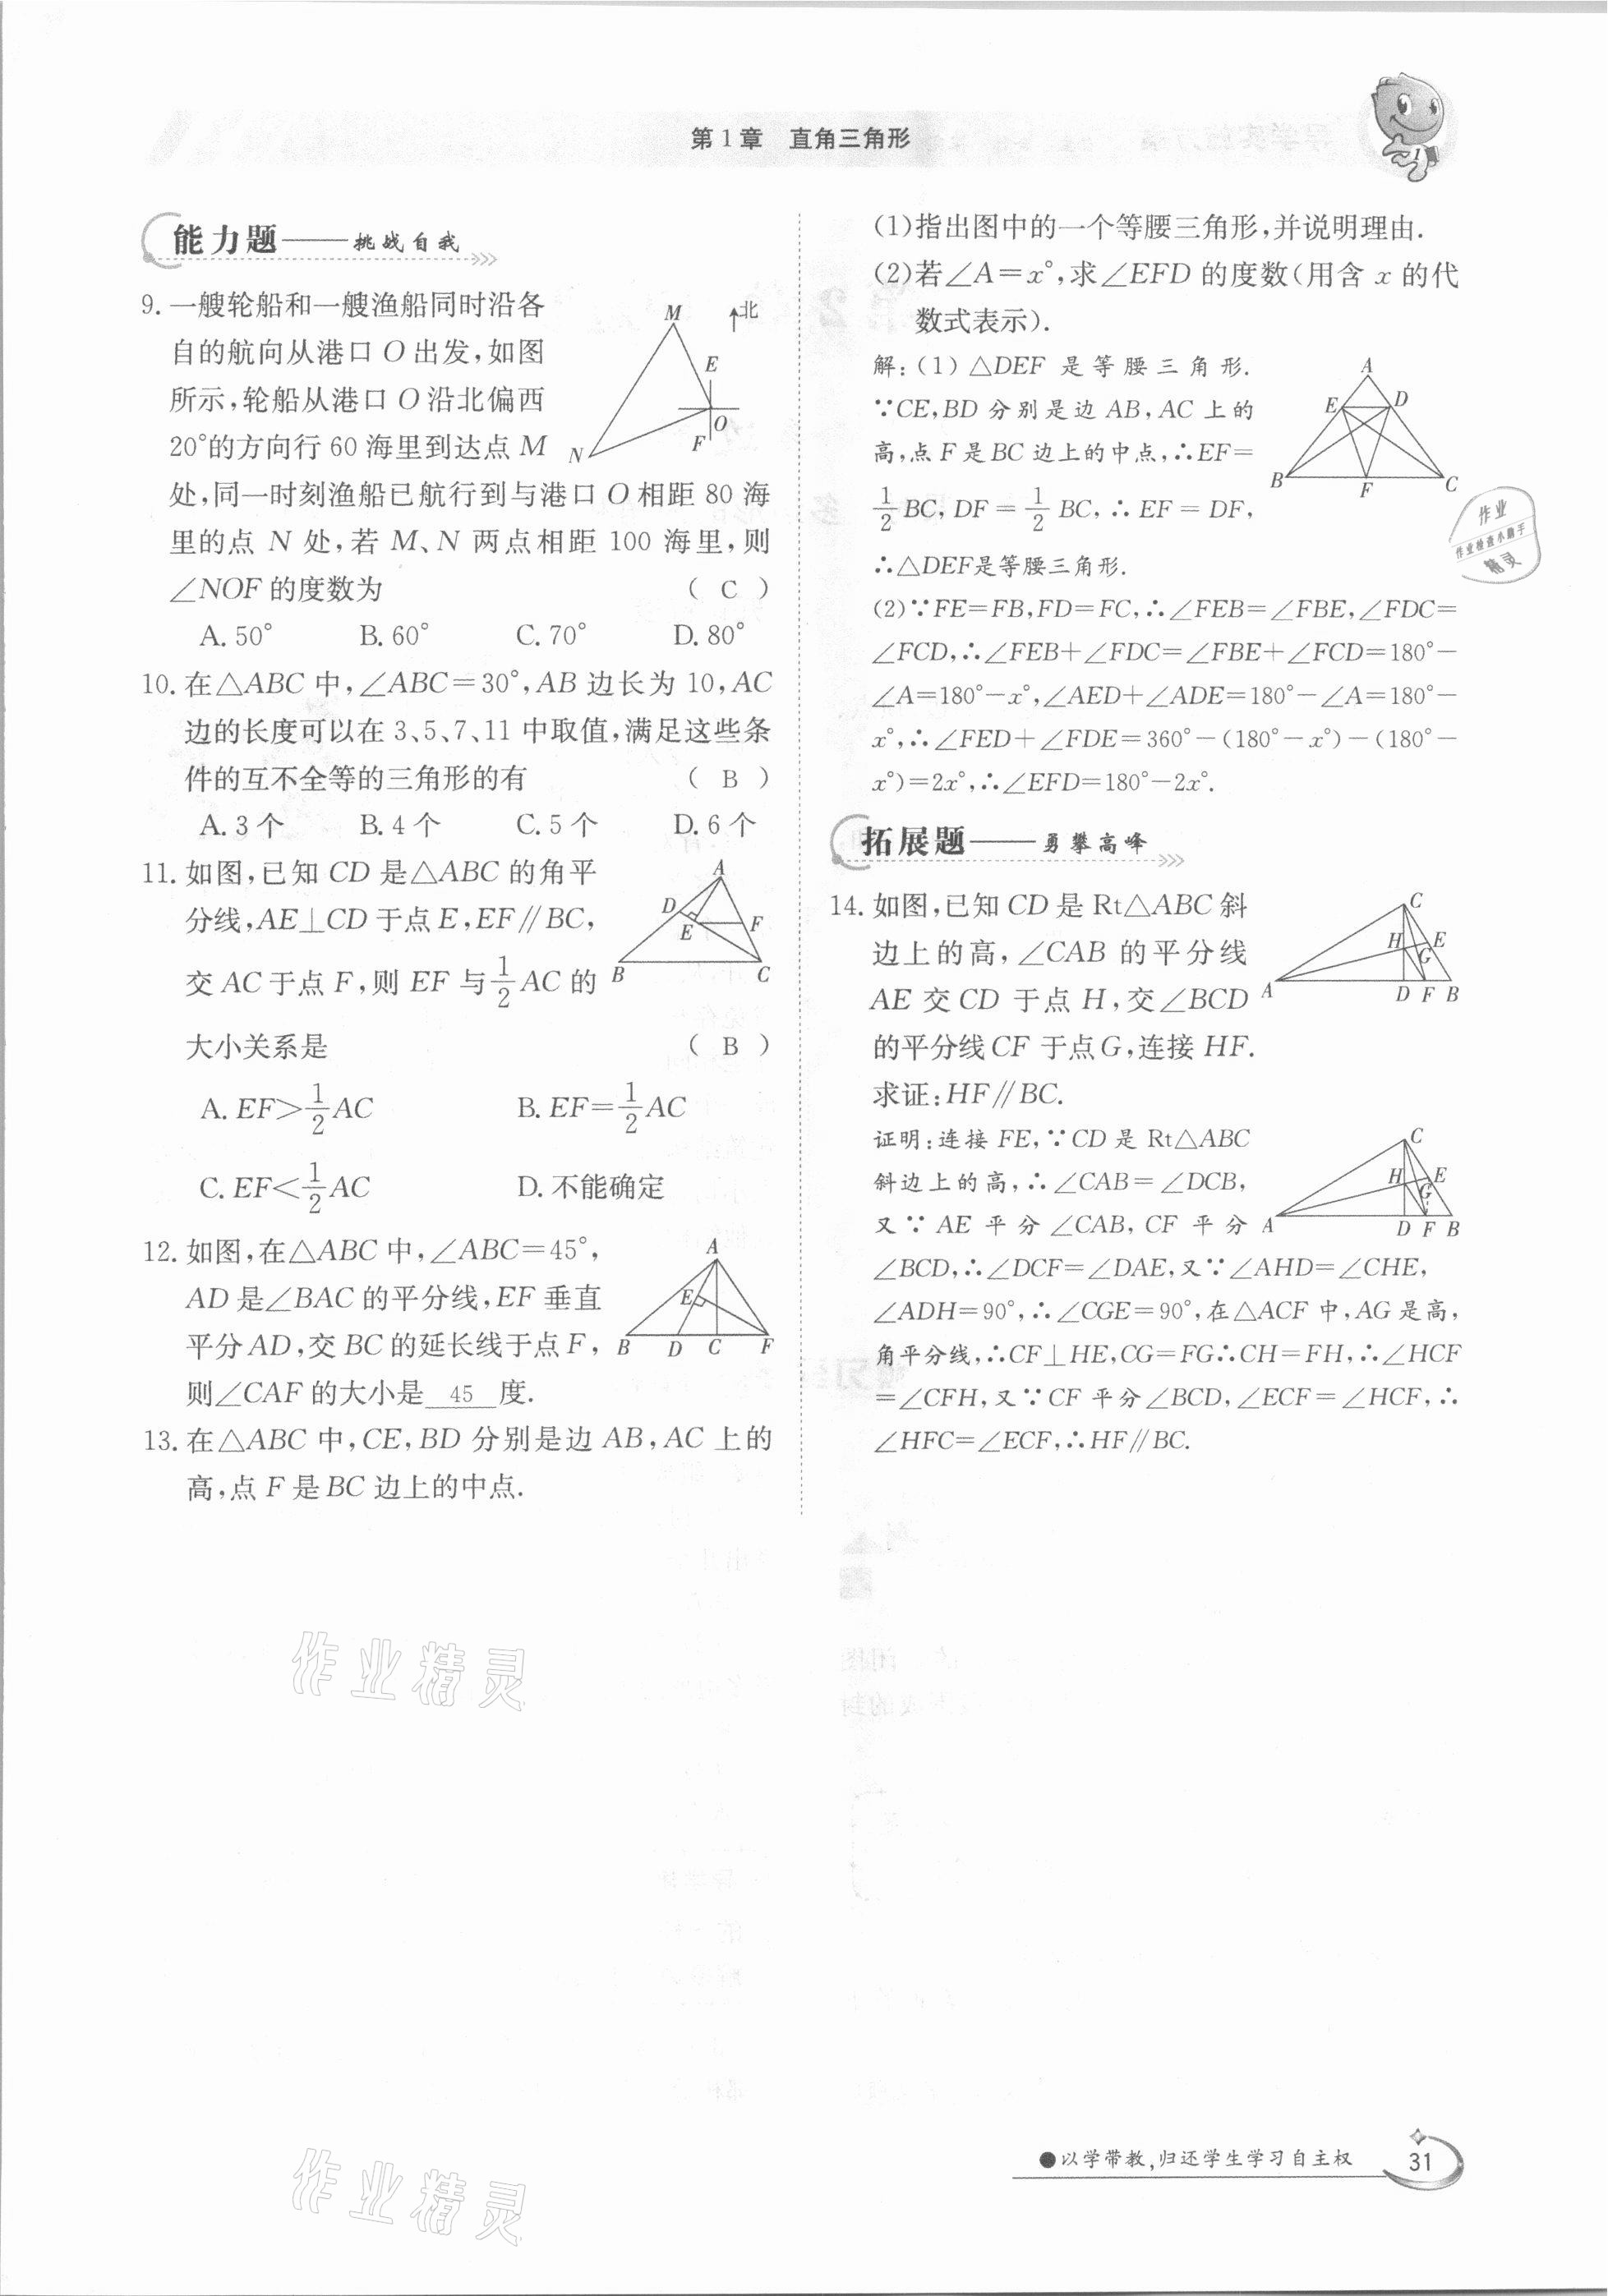 第1章 直角三角形
能力题——挑战自我
9. 一艘轮船和一艘渔船同时沿各
自的航向从港口 O 出发,如图
所示,轮船从港口 O 沿北偏西
20°的方向行 60 海里到达点 M
处,同一时刻渔船已航行到与港口 O 相距 80 海
里的点 N 处,若 M、N 两点相距 100 海里,则
∠NOF 的度数为 ( C )
A. 50° B. 60° C. 70° D. 80°
M
北
E
O
F
N
10. 在△ABC 中,∠ABC=30°,AB 边长为 10,AC
边的长度可以在 3、5、7、11 中取值,满足这些条
件的互不全等的三角形的有 ( B )
A. 3 个 B. 4 个 C. 5 个 D. 6 个
11. 如图,已知 CD 是△ABC 的角平
分线,AE⊥CD 于点 E,EF∥BC,
交 AC 于点 F,则 EF 与1/2 AC 的
大小关系是 ( B )
A. EF>1/2 AC B. EF=1/2 AC
C. EF<1/2 AC D. 不能确定
A
D
E
F
B
C
12. 如图,在△ABC 中,∠ABC=45°,
AD 是∠BAC 的平分线,EF 垂直
平分 AD,交 BC 的延长线于点 F,
则∠CAF 的大小是 45 度.
A
E
B D C F
13. 在△ABC 中,CE,BD 分别是边 AB,AC 上的
高,点 F 是 BC 边上的中点.
(1)指出图中的一个等腰三角形,并说明理由.
(2)若∠A=x°,求∠EFD 的度数(用含 x 的代
数式表示).
解:(1)△DEF 是等腰三角形.
∵CE,BD 分别是边 AB,AC 上的
高,点 F 是 BC 边上的中点,∴EF=
1/2 BC, DF=1/2 BC,∴EF=DF,
∴△DEF是等腰三角形.
A
E
D
B
F
C
(2)∵FE=FB,FD=FC,∴∠FEB=∠FBE,∠FDC=
∠FCD,∴∠FEB+∠FDC=∠FBE+∠FCD=180°−
∠A=180°−x°,∠AED+∠ADE=180°−∠A=180°−
x°,∴∠FED+∠FDE=360°−(180°−x°)−(180°−
x°)=2x°,∴∠EFD=180°−2x°.
作业
作业检查小助手
精灵
拓展题——勇攀高峰
14. 如图,已知 CD 是 Rt△ABC 斜
边上的高,∠CAB 的平分线
AE 交 CD 于点 H,交∠BCD
的平分线 CF 于点 G,连接 HF.
求证:HF∥BC.
C
H E
G
A
D F B
证明:连接 FE,∵CD 是 Rt△ABC
斜边上的高,∴∠CAB=∠DCB,
又∵AE 平分∠CAB,CF 平分
∠BCD,∴∠DCF=∠DAE,又∵∠AHD=∠CHE,
∠ADH=90°,∴∠CGE=90°,在△ACF 中,AG 是高,
角平分线,∴CF⊥HE,CG=FG∴CH=FH,∴∠HCF
=∠CFH,又∵CF 平分∠BCD,∠ECF=∠HCF,∴
∠HFC=∠ECF,∴HF∥BC.
C
H E
G
A
D F B
作业精灵
作业精灵
●以学带教,归还学生学习自主权
31